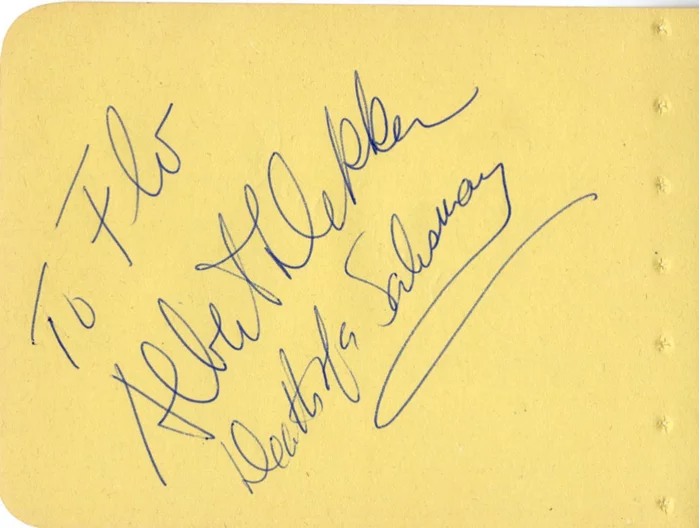 To Flo
Albert Dekker
Death of a Salesman